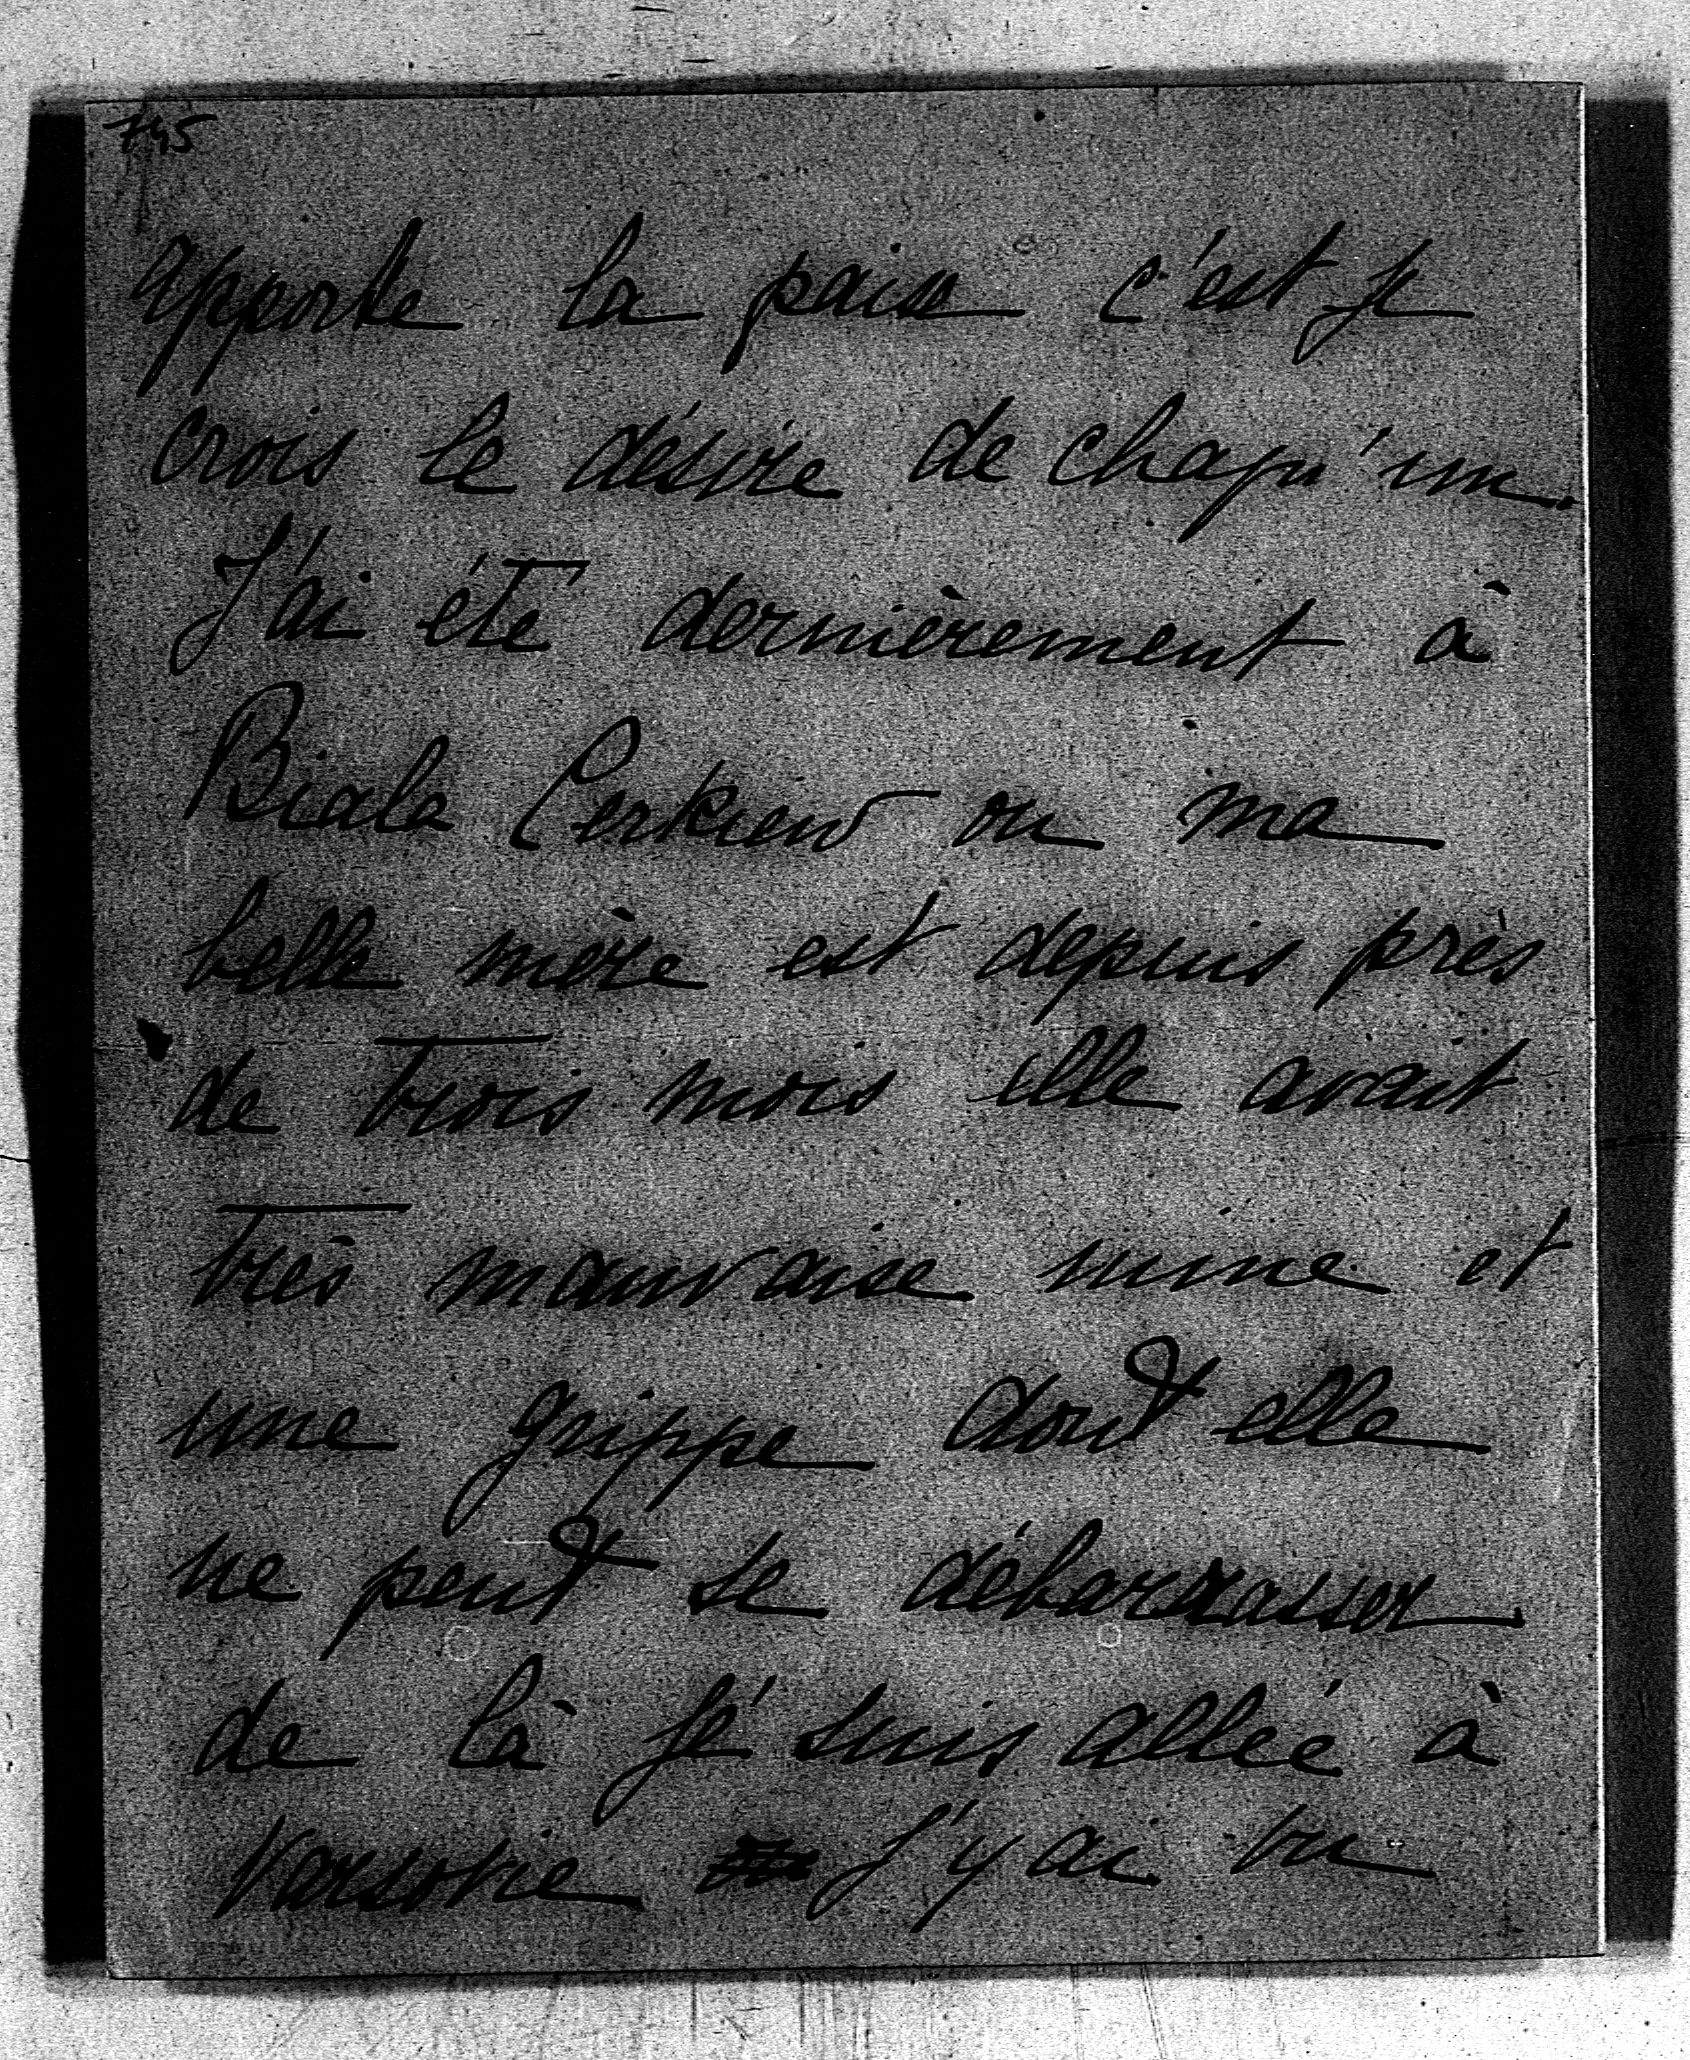 745
apporte la paix c'est je
crois le désire de chaqu'un.
J'ai été dernièrement à
Biala Cerkiew ou ma
belle mère est depuis près
de trois mois elle avait
très mauvaise mine et
une grippe dont elle
ne peut se débarrasser
de là je suis allée à
Varsovie J'y ai vu